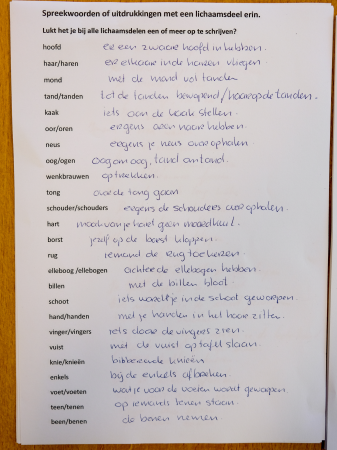 Spreekwoorden of uitdrukkingen met een lichaamsdeel erin.
Lukt het je bij alle lichaamsdelen een of meer op te schrijven?
hoofd er een zwaar hoofd in hebben.
haar/haren elkaar in de haren vliegen
mond met de mond vol tanden
tand/tanden tot de tanden bewapend / haar op de tanden.
kaak iets aan de kaak stellen.
oor/oren ergens oren naar hebben.
neus ergens je neus voor ophalen
oog/ogen oog om oog, tand om tand.
wenkbrauwen optrekken.
tong over de tong gaan
schouder/schouders ergens de schouders over ophalen.
hart maak van je hart geen moordkuil.
borst jezelf op de borst kloppen.
rug iemand de rug toekeren.
elleboog /ellebogen achter de ellebogen hebben.
billen met de billen bloot.
schoot iets wordt je in de schoot geworpen.
hand/handen met je handen in het haar zitten.
vinger/vingers iets door de vingers zien.
vuist met de vuist op tafel slaan.
knie/knieën bibberende knieën
enkels bij de enkels afbreken.
voet/voeten wat je voor de voeten wordt geworpen.
teen/tenen op iemands tenen staan.
been/benen de benen nemen